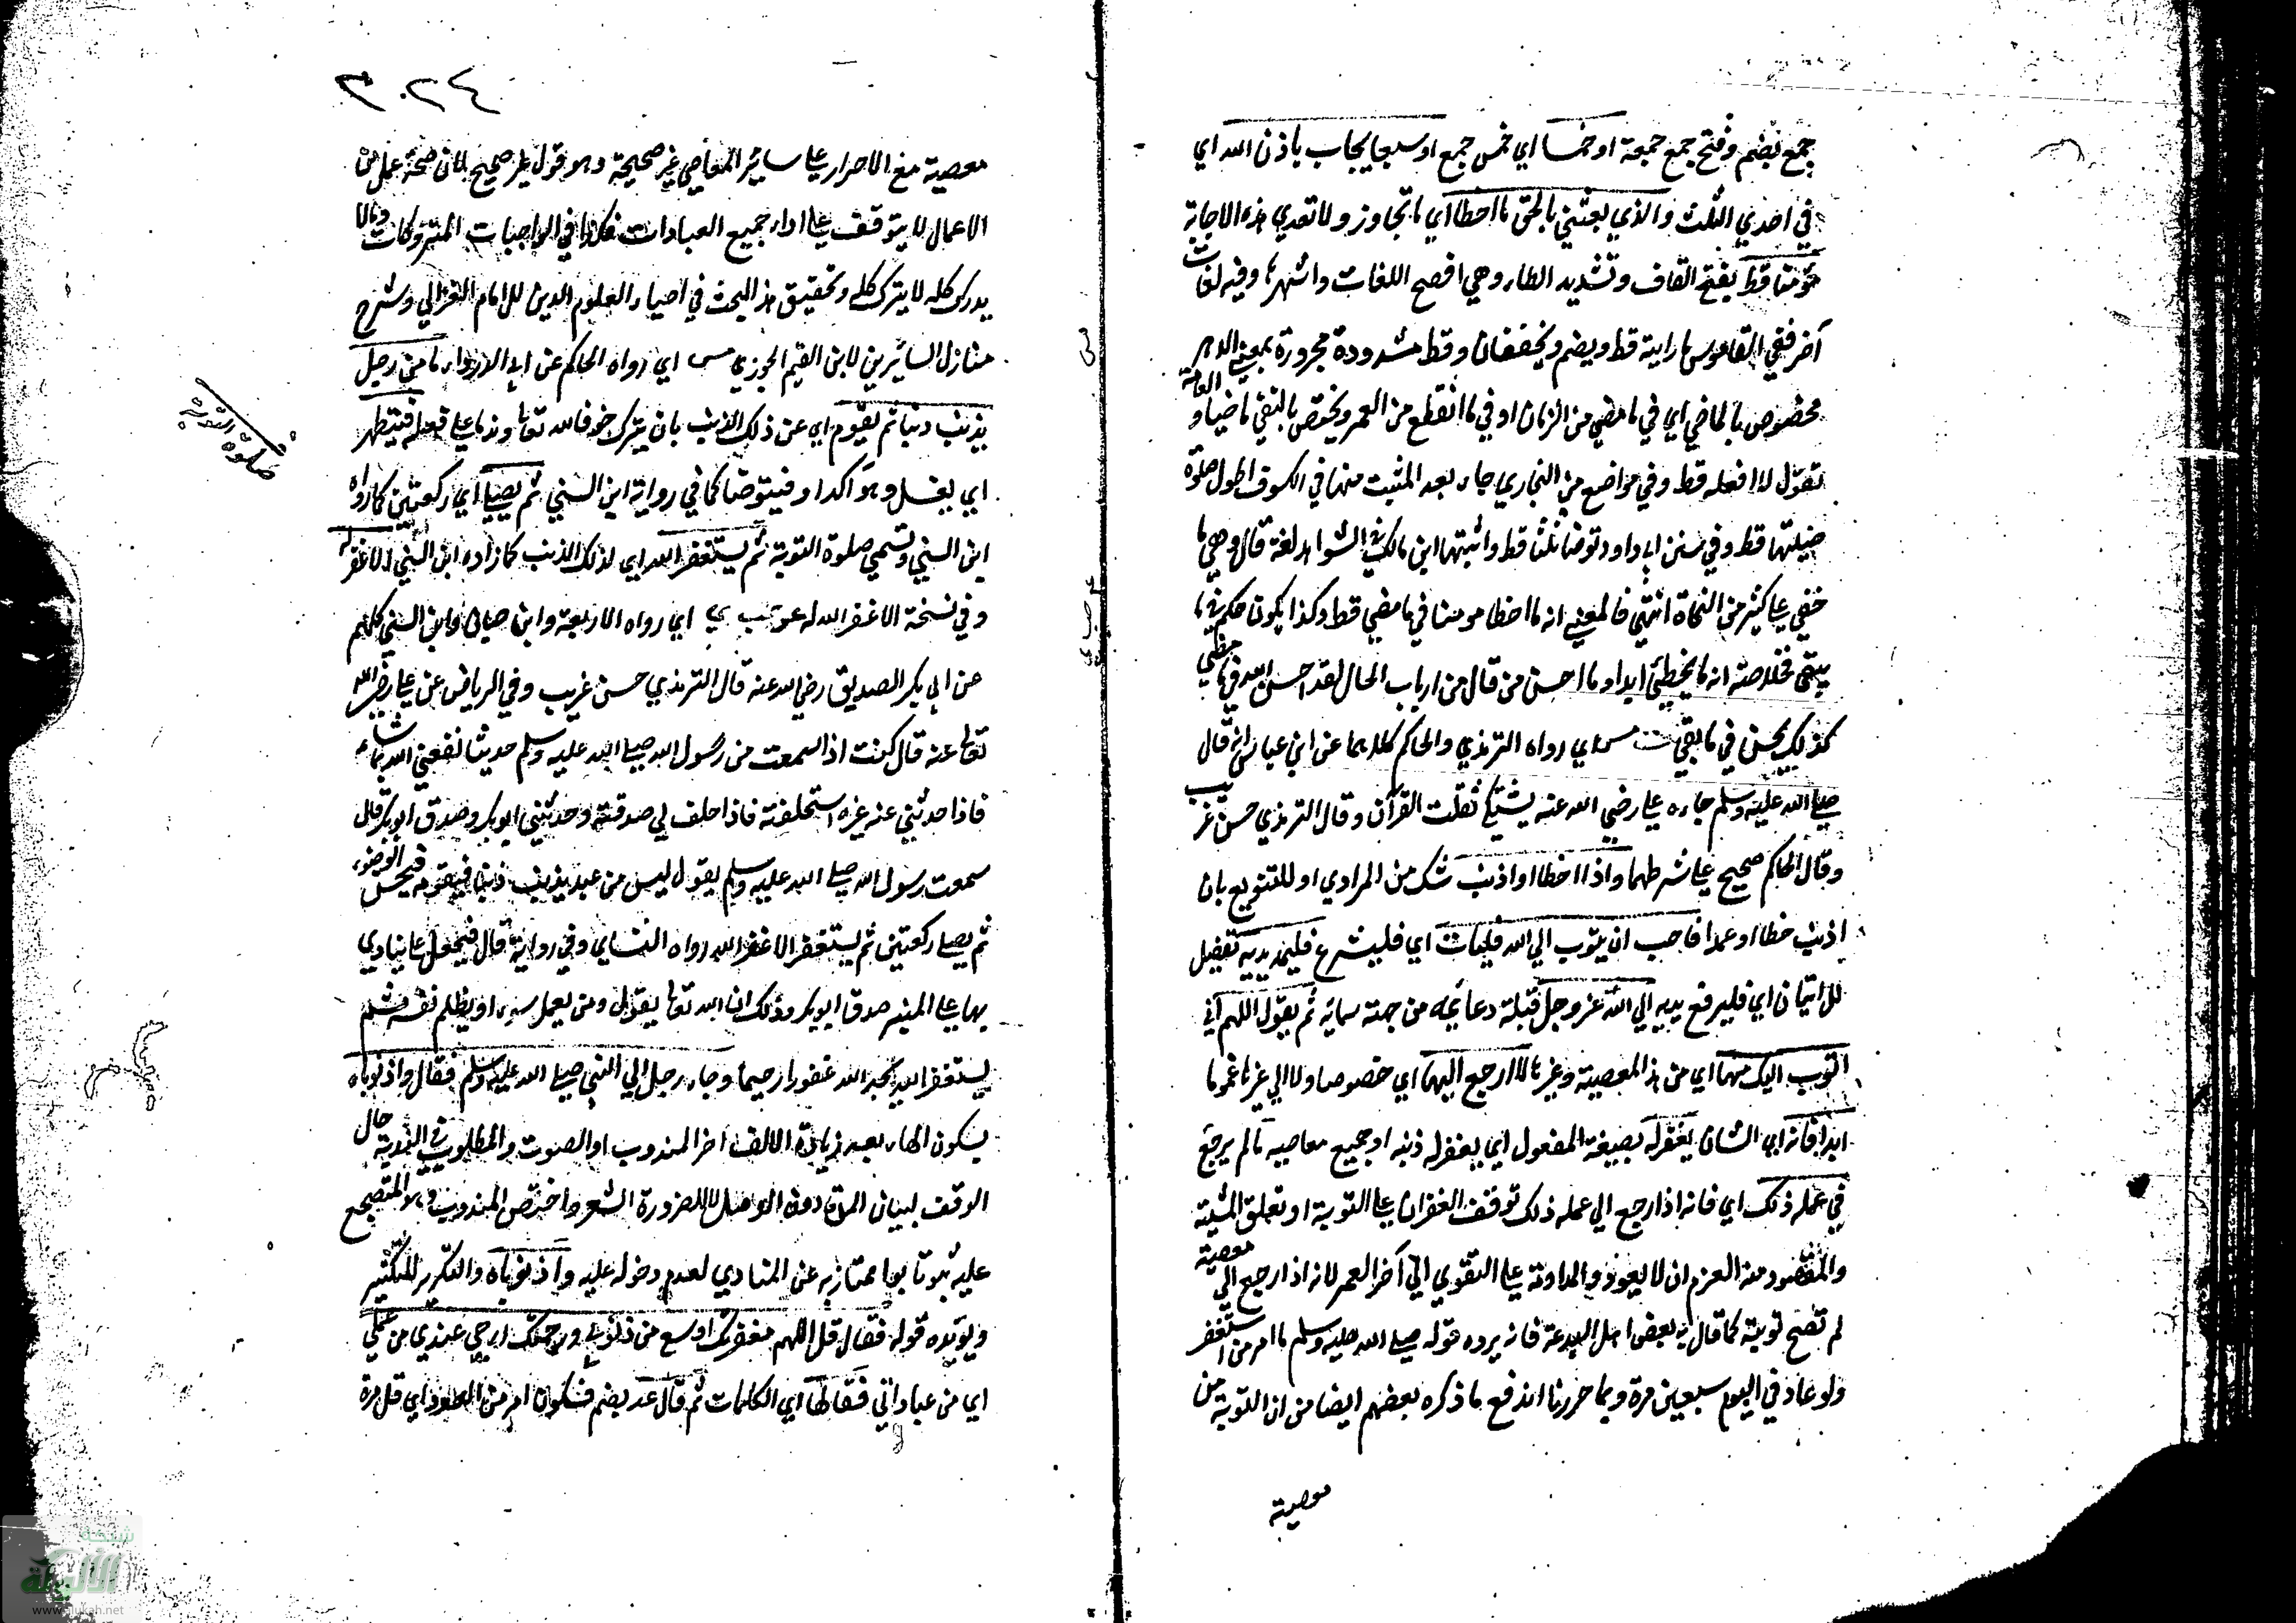 جمع بضم وفتح جمع جمعة او خمسا اي خمس جمع او سبعا يجاب باذن الله اي
في احدي الثلث والذي بعثني بالحق ما اخطا اي ما تجاوز ولا تعدي هذه الاجابة
مؤمنا قط بفتح القاف وتشديد الطاء وهي افصح اللغات واشهرها وفيه لغات
آخر ففي القاموس ما رايته قط ويضم ويخففان وقط مشدودة مجرورة بمعني الدهر
مخصوص بالماضي اي في ما مضي من الزمان او في ما انقطع من العمر ويختص بالنفي ماضيا و العامة
تقول لا افعله قط وفي مواضع من البخاري جاء بعد المثبت منها في الكسوف اطول صلوة
صليتها قط وفي سنن ابي داود توضا ثلثا قط واثبتها ابن مالك في الشواهد لغة قال وهي مما
خفي علي كثير من النحاة انتهي فالمعني انه ما اخطا مومنا في ما مضي قط وكذا يكون حكم في ما
يبقي فخلاصته انه ما يخطئ ابدا وما احسن من قال من ارباب الحال لقد احسن الله في ما مضي
كذلك يحسن في ما بقي ت مس اي رواه الترمذي والحاكم كلاهما عن ابن عباس انه قال
صلي الله عليه وسلم جاءه علي رضي الله عنه يشتكي تفلت القرآن وقال الترمذي حسن غريب
وقال الحاكم صحيح علي شرطهما واذا اخطا او اذنب شك من الراوي او للتنويع بان
اذنب خطا او عمدا فاحب ان يتوب الي الله فليات اي فليشرع فليمد يديه تفصيل
للاتيان اي فليرفع يديه الي الله عز وجل قبلة دعائه من جهة سمائه ثم يقول اللهم اني
اتوب اليك منها اي من هذا المعصية وغيرها لا ارجع اليها اي خصوصا ولا الي غيرها عموما
ابدا فانه اي الشان يغفر له بصيغة المفعول اي يغفر له ذنبه او جميع معاصيه ما لم يرجع
في عمله ذلك اي فانه اذا رجع الي عمله ذلك توقف الغفران علي التوبة او تعلق المشية
والمقصود منه العزم ان لا يعود والمداومة علي التقوي الي آخر العمر لانه اذا رجع الي معصية
لم تصح توبته كما قال به بعض اهل البدعة فانه يرده قوله صلي الله عليه وسلم ما اصر من استغفر
ولو عاد في اليوم سبعين مرة وبما حررنا اندفع ما ذكره بعضهم ايضا من ان التوبة من
معصية
٣٠٢٤
معصية مع الاصرار علي سائر المعاصي غير صحيحة وهو قول غير صحيح لان صحة عمل من
الاعمال لا يتوقف علي اداء جميع العبادات فكذا في الواجبات المتروكات وما لا
يدرك كله لا يترك كله وتحقيق هذا البحث في احياء العلوم الدين للامام الغزالي وشرح
منازل السائرين لابن القيم الجوزي مس اي رواه الحاكم عن ابي الدرداء ما من رجل
يذنب دنبا ثم يقوم اي عن ذلك الذنب بان يترك خوفا لله تعا وندما علي فعله فيتطهر
اي يغسل وهو آكد او فيتوضا كما في رواية ابن السني ثم يصلي اي ركعتين كما رواه
ابن السني وتسمي صلوة التوبة ثم يستغفر الله اي لذلك الذنب كما زاده ابن السني الا غفر له
وفي نسخة الا غفر الله له عه حب ي اي رواه الاربعة وابن حبان وابن السني كلهم
عن ابي بكر الصديق رضي الله عنه قال الترمذي حسن غريب وفي الرياض عن علي رضي الله
تعا عنه قال كنت اذا سمعت من رسول الله صلي الله عليه وسلم حديثا نفعني الله بما شاء
فاذا حدثني عنه غيره استحلفته فاذا حلف لي صدقته وحدثني ابو بكر وصدق ابو بكر قال
سمعت رسول الله صلي الله عليه وسلم يقول ليس من عبد يذنب ذنبا فيقوم فيحسن الوضوء
ثم يصلي ركعتين ثم يستغفر الا غفر الله رواه النساي وفي رواية قال فجعل علي ينادي
بها علي المنبر صدق ابو بكر وذلك ان الله تعا يقول ومن يعمل سوء او يظلم نفسه ثم
يستغفر الله يجد الله غفورا رحيما وجاء رجل الي النبي صلي الله عليه وسلم فقال واذنوباه
بسكون الهاء بعد زيادة الالف اخر المندوب او الصوت والمطلوب في الندبة حال
الوقف لبيان المد دون الوصل الا للضرورة الشعر واختص المندوب وهو المتفجع
عليه ثبوتا بوا ممتاز به عن المنادي لعدم دخوله عليه واذنوباه والتكرير للتكثير
ويؤيده قوله فقال قل اللهم مغفرتك اوسع من ذنوبي ورحمتك ارجي عندي من عملي
اي من عباداتي فقالها اي الكلمات ثم قال عد بضم فسكون امر من العود اي قل مرة
صلوة التوبة